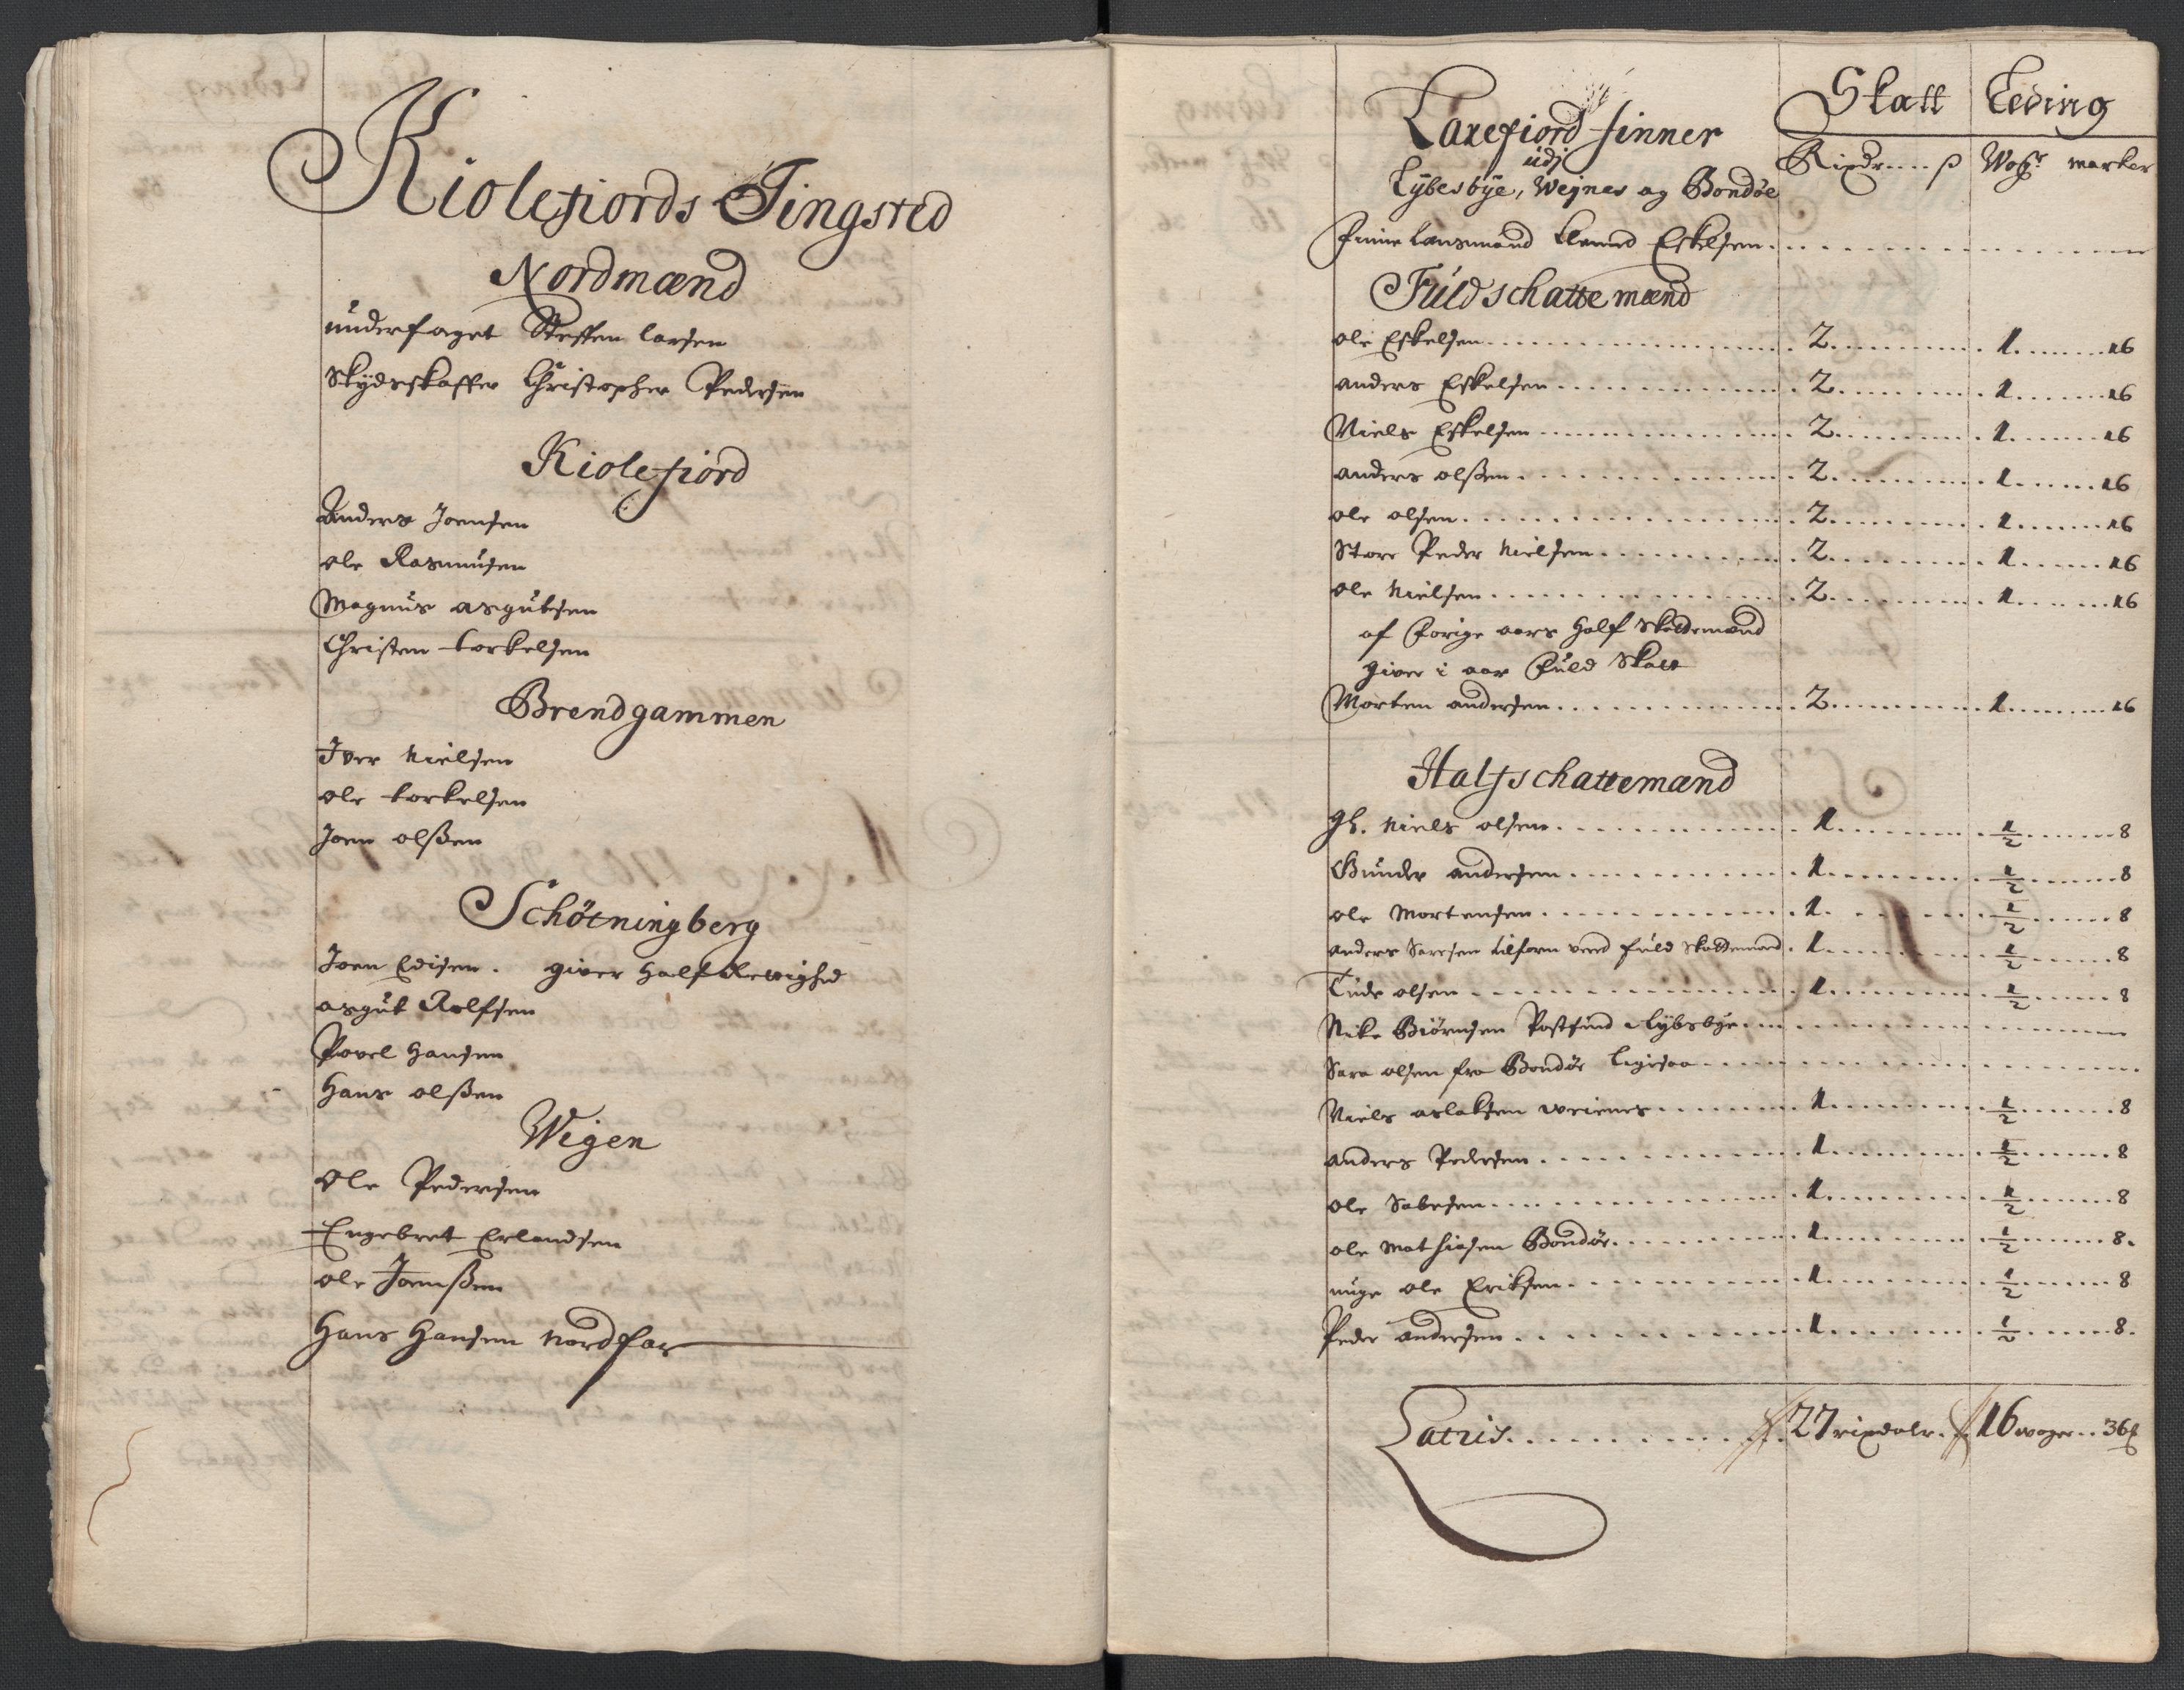 Kiolefiords Tingsted
Nordmænd
underfaget Steffen larsen
Skydsskaffer Christopher Pedersen
Kiolefiord
Anders Joensen
ole Rasmusen
Magnus asgutsen
Christen torkelsen
Brendgammen
Iver Nielsen
ole torkelsen
Joen olßen
Schötningberg
Joen Edisen. giver half Rettighed
asgut Rolfsen
Povel Hansen
Hans olßen
Wigen
Ole Pedersen
Engebret Erlandsen
ole Joenßen
Hans Hansen Nordfar
Skatt Leding
Laxefiord finner
udj
Rixdr .... ß Wogr marker
Lybesbye, Wejnes og Bondøe
Finne Lensmand Clemed Eskelsen
Fuldschattemænd
ole Eskelsen 2 1 16
anders Eskelsen 2 1 16
Niels Eskelsen 2 1 16
anders olßen 2 1 16
ole olsen 2 1 16
Store Peder Nielsen 2 1 16
ole Nielsen 2 1 16
af Forige aars half Skattemænd
giver i aar Fuld Skatt
Morten andersen 2 1 16
Halfschattemænd
gl. Niels olsen 1 1/2 8
Gunder andersen 1 1/2 8
ole Mortensen 1 1/2 8
anders Saresen tilforn verd fuld Skattemand 1 1/2 8
Tude olsen 1 1/2 8
Nike Biörnsen Postfind i Lybsbye
Sara olsen fra Bondøe ligesaa
Niels aslaksen weienes 1 1/2 8
anders Pedersen 1 1/2 8
ole Sabesen 1 1/2 8
ole Mathiasen Bondøe 1 1/2 8.
unge ole Eriksen 1 1/2 8
Peder andersen 1 1/2 8.
Latris 27 rixdaler. 16 woger.. 36